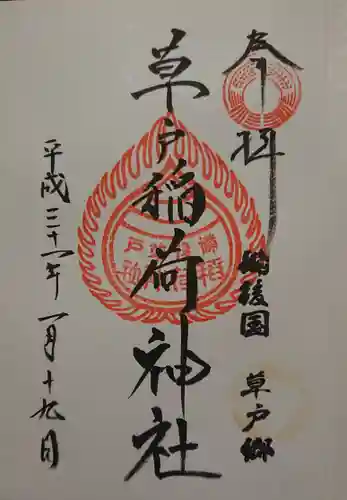 奉拝
備後國 草戸郷
草戸稲荷神社
平成三十一年一月十九日